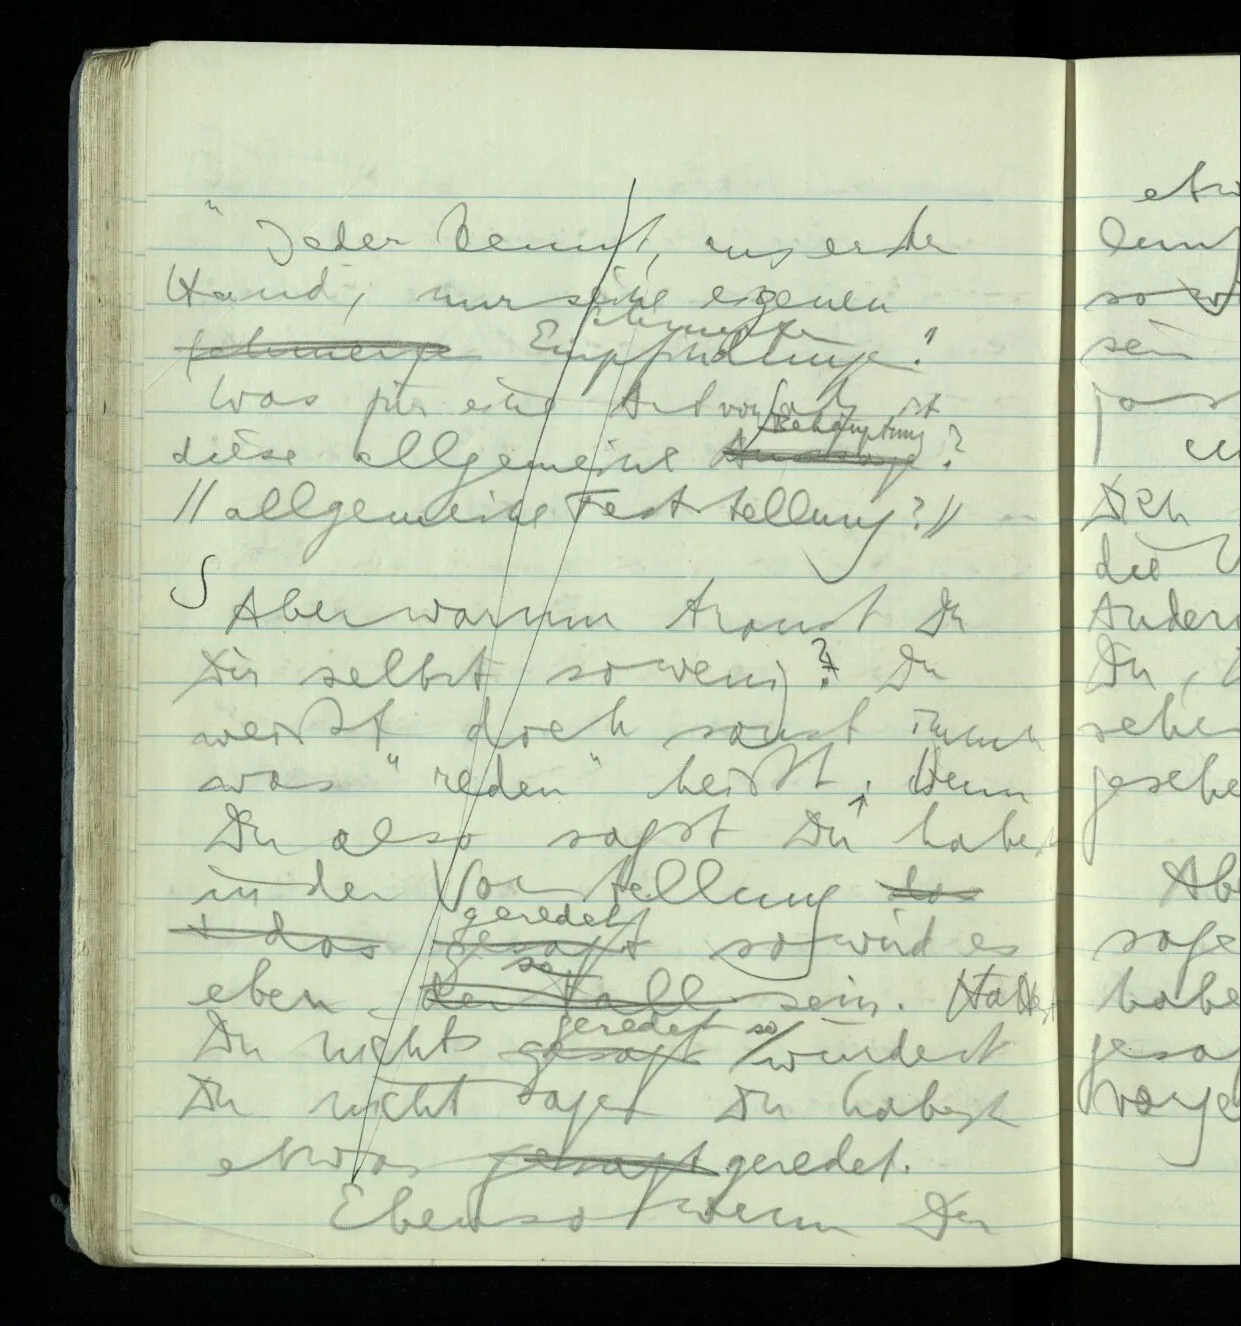 "Jeder kennt, aus erster
Hand, nur seine eigenen
Schmerzen
Schmerze Empfindung."
Was für eine Art von Satz ist
Behauptung
diese allgemeine Aussage?
// allgemeine Feststellung? //
S Aber warum traust Du
Dir selbst so wenig? Du
weißt doch sonst immer
was "reden" heißt. Wenn
Du also sagst Du habest
in der Vorstellung das
+ das geredet
gesagt so wird es
so
eben der Fall sein. Hättest
geredet so
Du nichts gesagt würdest
Du nicht sagen Du habest
etwas gesagt geredet.
Ebenso wenn Du
etw
sein
Dich
die
Andern
Du,
sehe
gesehe
Ab
sage
habe
gesa
vorge